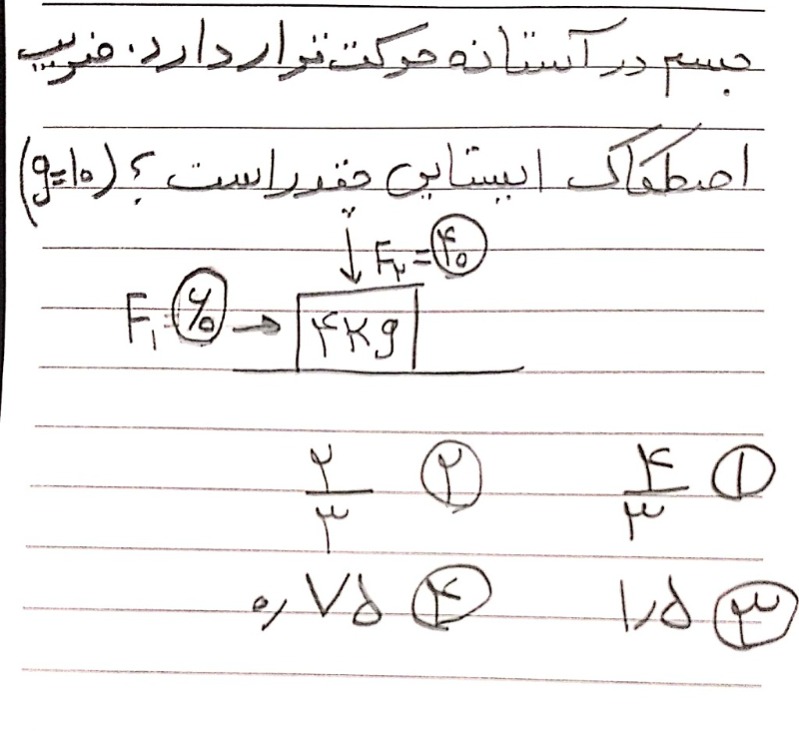 جسم در آستانه حرکت قرار دارد. ضریب
اصطکاک ایستایی چقدر است؟ (g=۱۰)
F۲=۴۰
F۱=۶۰ → ۴kg
① ۴/۳ ② ۲/۳
③ ۱٫۵ ④ ۰٫۷۵